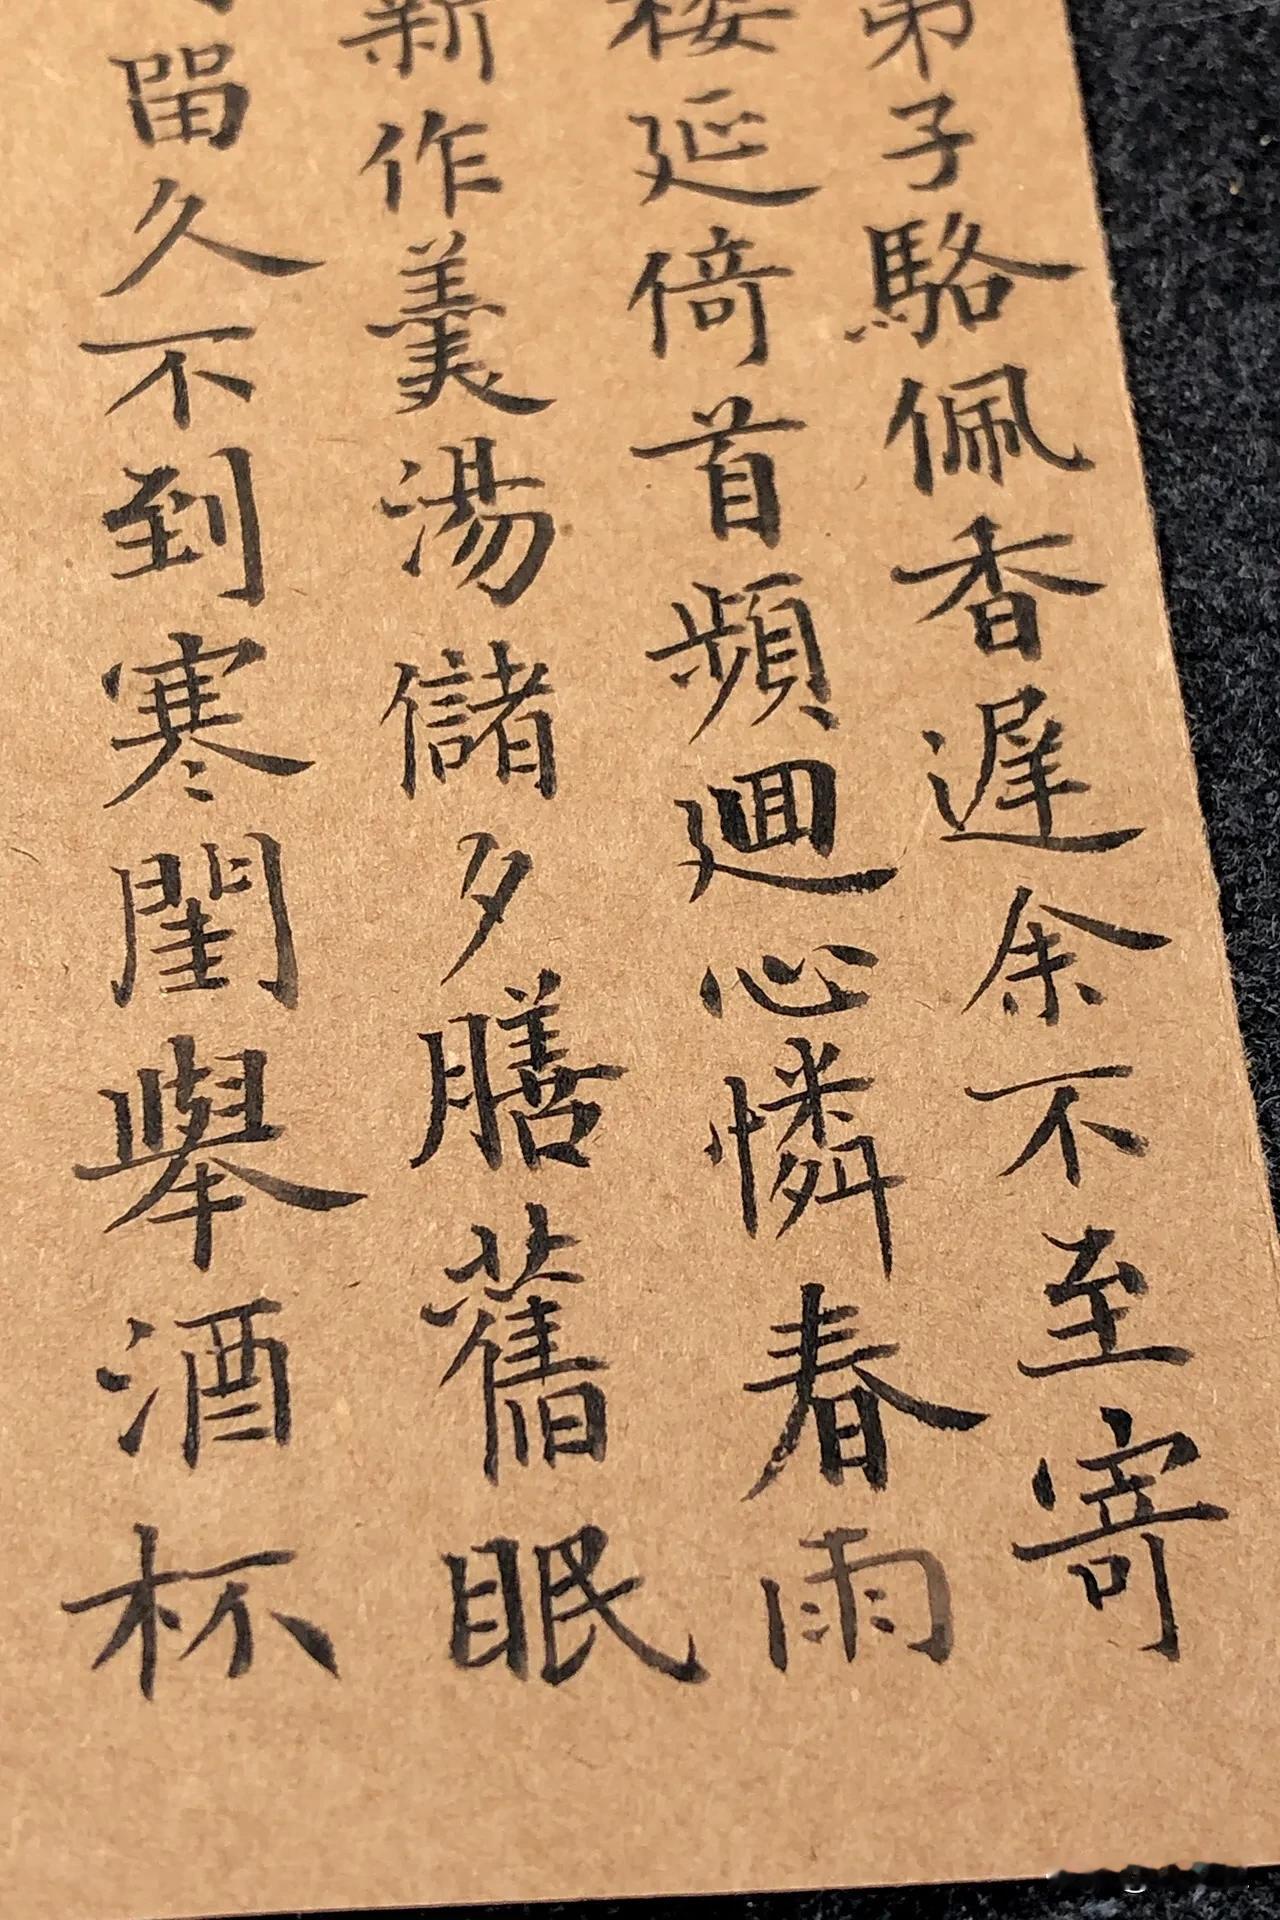 弟子駱佩香遲余不至寄
延倚首頻廻心憐春雨
新作羹湯儲夕膳舊眠
留久不到寒閨舉酒杯